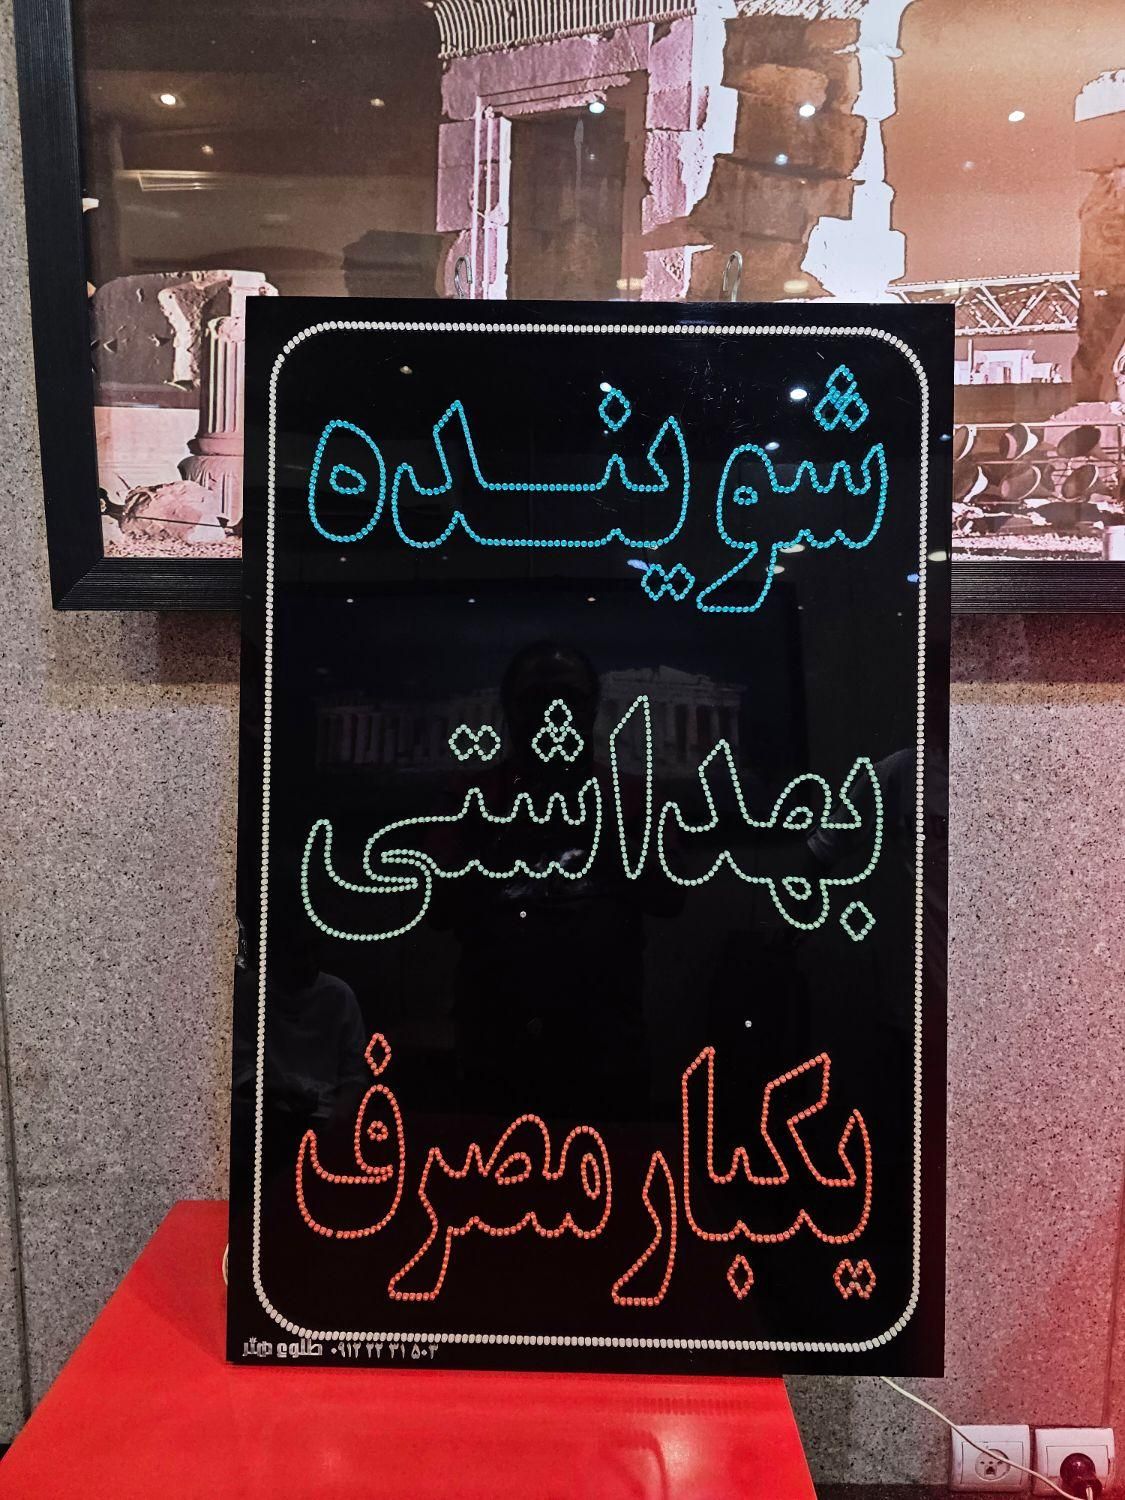 شوینده
بهداشتی
یکبار مصرف
طلوع هنر ۰۹۱۲ ۲۲ ۳۱ ۵۰۳